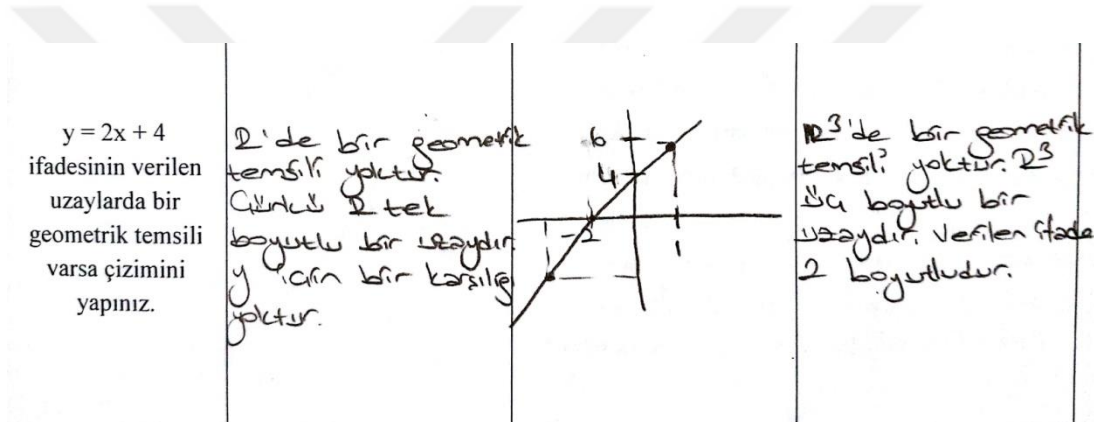 y = 2x + 4
ifadesinin verilen
uzaylarda bir
geometrik temsili
varsa çizimini
yapınız.
R'de bir geometrik
temsili yoktur.
Çünkü R tek
boyutlu bir uzaydır
y için bir karşılığı
yoktur.
6
4
-2
1
R³'de bir geometrik
temsili yoktur. R³
üç boyutlu bir
uzaydır. Verilen ifade
2 boyutludur.